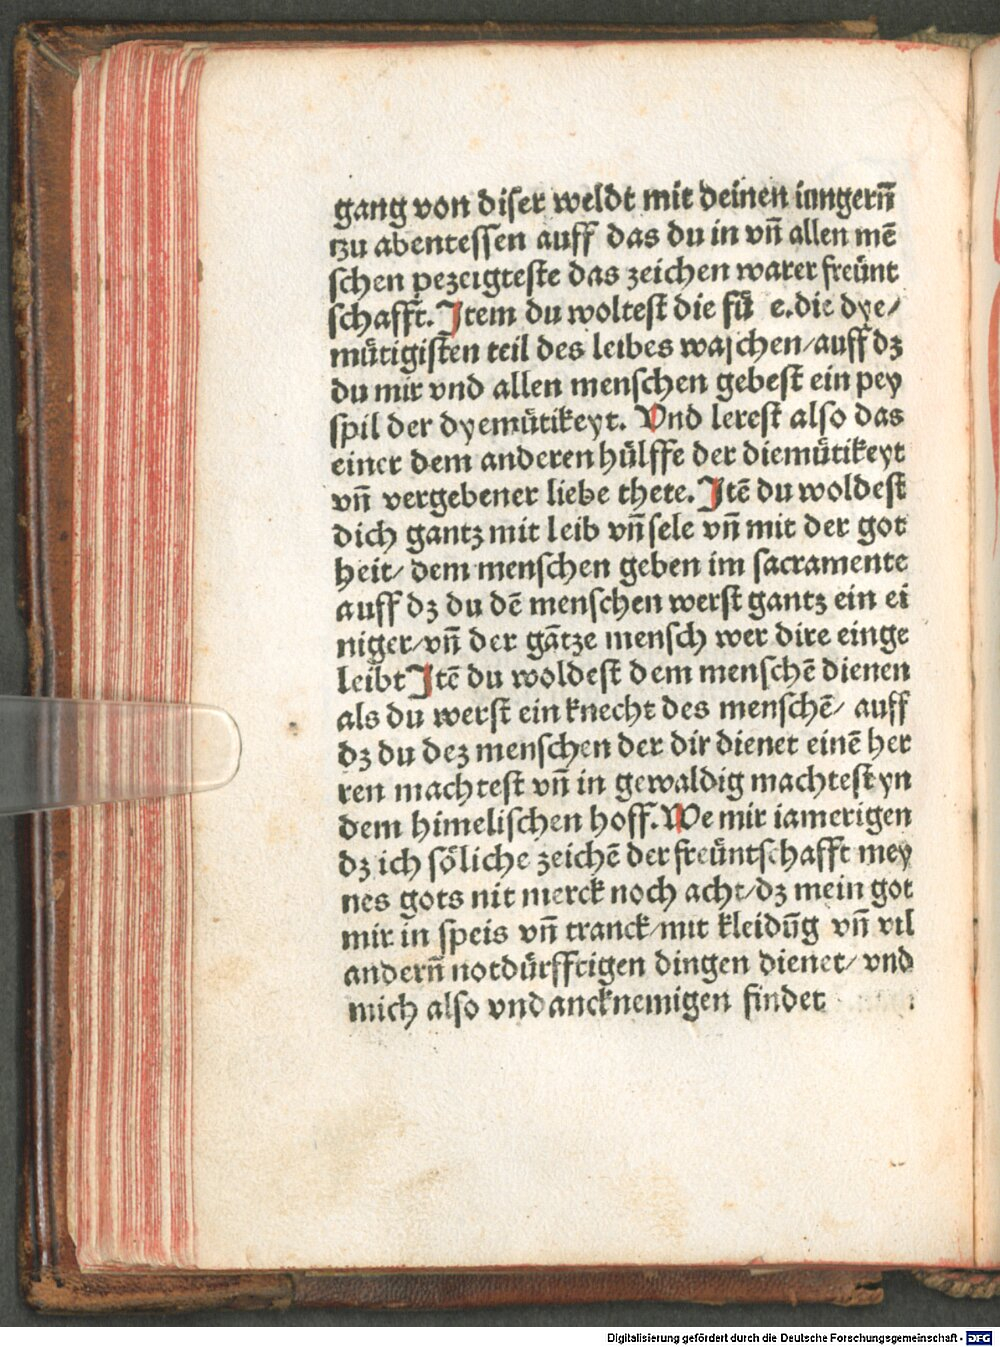 gang von diſer weldt mit deinen iungern̄
tzu abenteſſen auff das du in vn̄ allen mē
ſchen pezeigteſte das zeichen warer freünt
ſchafft. Item du wolteſt die fü e. die dye/
mütigiſten teil des leibes waſchen/auff dz
du mir vnd allen menſchen gebeſt ein pey
ſpil der dyemütikeyt. Vnd lereſt alſo das
einer dem anderen hülffe der diemütikeyt
vn̄ vergebener liebe thete. Itē du woldeſt
dich gantz mit leib vn̄ ſele vn̄ mit der got
heit/ dem menſchen geben im ſacramente
auff dz du dē menſchen werſt gantz ein ei
niger/vn̄ der gātze menſch wer dire einge
leibt Itē du woldeſt dem menſchē dienen
als du werſt ein knecht des menſchē/ auff
dz du dez menſchen der dir dienet einē her
ren machteſt vn̄ in gewaldig machteſt yn
dem himeliſchen hoff. We mir iamerigen
dz ich ſöliche zeichē der freüntſchafft mey
nes gots nit merck noch acht/dz mein got
mir in ſpeis vn̄ tranck/mit kleidūg vn̄ vil
andern̄ notdürfftigen dingen dienet/ vnd
mich alſo vndancknemigen findet
Digitalisierung gefördert durch die Deutsche Forschungsgemeinschaft - DFG